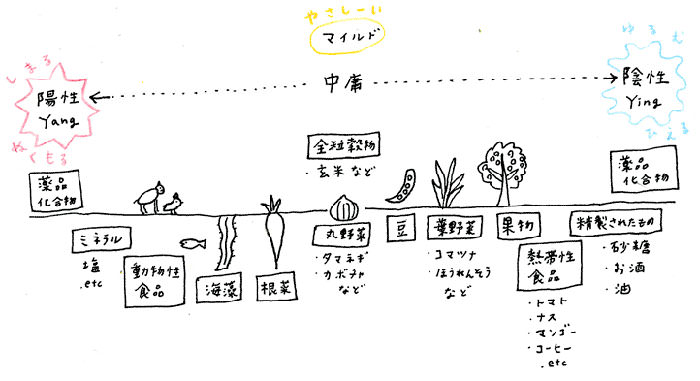 やさしーい
マイルド
しまる
陽性
Yang
ぬくもる
中庸
ゆるむ
陰性
Ying
ひえる
薬品
化合物
ミネラル
塩
.etc
動物性
食品
海藻
根菜
全粒穀物
・玄米など
丸野菜
・タマネギ
・カボチャ
など
豆
葉野菜
・コマツナ
・ほうれんそう
など
果物
熱帯性
食品
・トマト
・ナス
・マンゴー
・コーヒー
.etc
薬品
化合物
精製されたもの
・砂糖
・お酒
・油